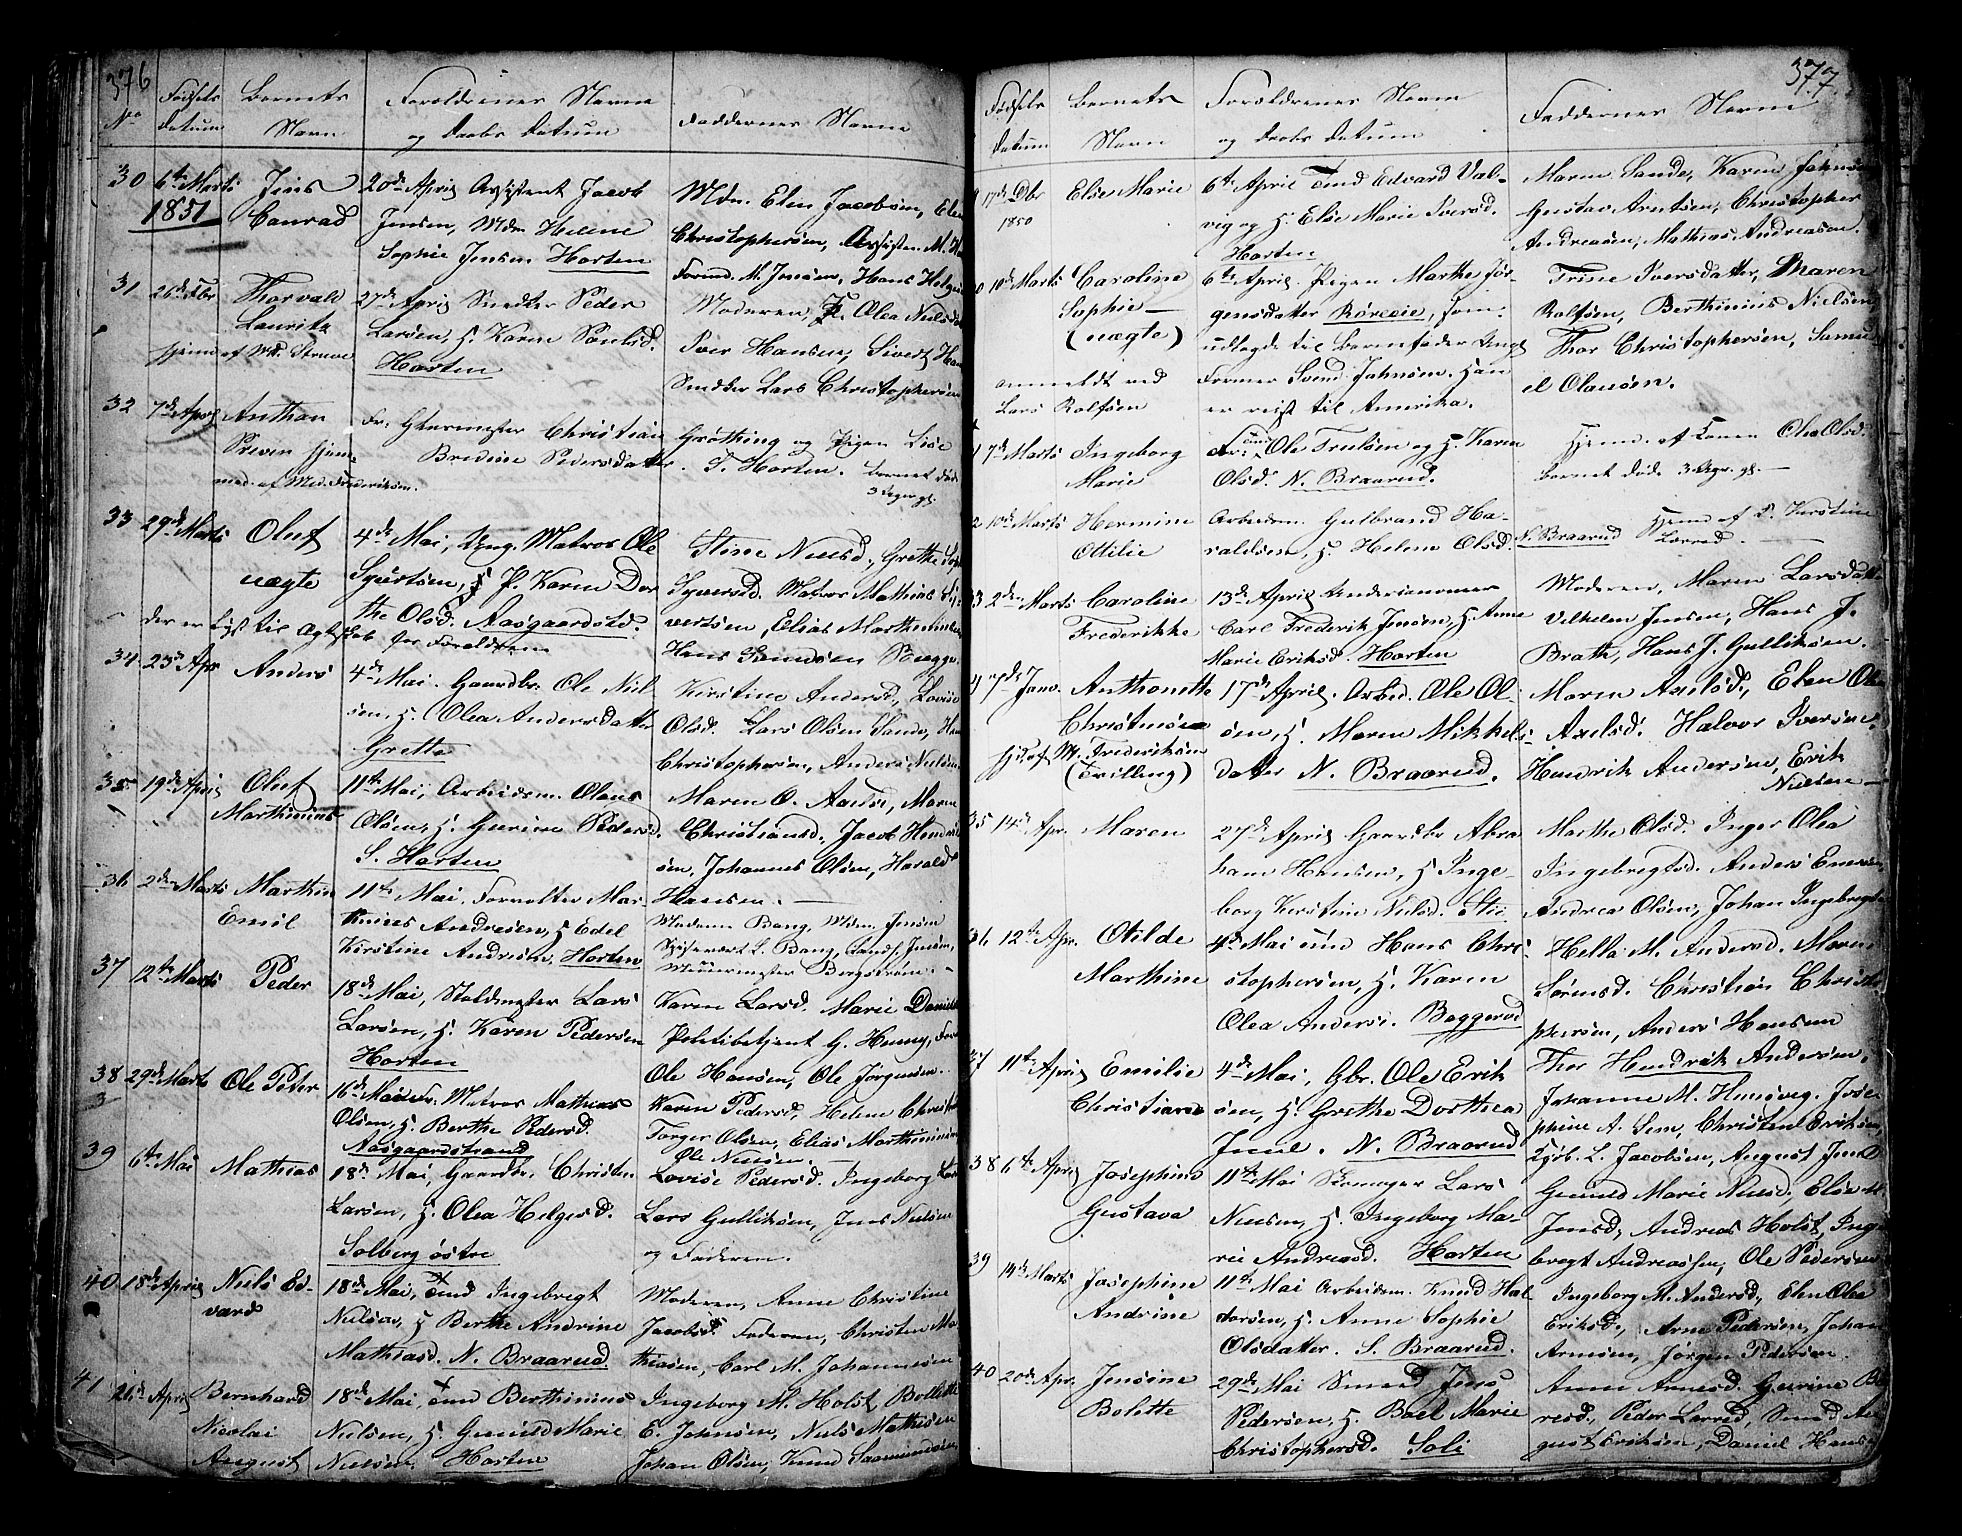 376
No
Fødsels
datum
Barnets
Navn
Forældrenes Navne
og daabs datum
Faddernes Navne
30
6te Marts
1851
Jens
Conrad
20de April Assistent Jacob
Jensen, Mdm. Helene
Sophie Jensen Horten
Mdm. Elen Jacobsen, Elen
Christophersen, Assisten. M.
Formd. M. Jensen, Hans Helge
31
26de Fbr
Thorvald
Lauritz
hjemmed. af Md. Struve
27de April Snedker Peder
Larsen, H. Karen Poulsd.
Horten
Moderen, J. Olea Nielsd
Iver Hansen, Sivert
Snedker Lars Christophersen
32
7de April
Anthon
Preven hjem-
med. af Md. Frederiksen.
Fr: Glarmester Christian
Bredine Pedersdatter
Grøthing og Pigen Lise
T. Horten. barnet død
3 Dager gl.
33
29de Marts
Oluf
uægte
4de Mai, Ung. Matros Ole
Syvertsen, & P. Karen Dor
the Olsd. Aasgaardstd.
der er lyst til Ægteskab for Forældrene
Stine Nielsd., Grethe Sop
Syversd. Matros Mathias Si-
vertsen, Elias Marthinisen
Hans Bugge.
34
23de Apr
Anders
4de Mai. Gaardbr. Ole Niel
sen, H. Olea Andersdatter
Grette
Kirstine Andersd., Lovise
Olsd. Lars Olsen Sande,
Christophersen, Anders Nielsen
35
19de April
Oluf
Marthinius
11te Mai, Arbeidsm. Olaus
Olsen, H. Gurine Pedersd.
S. Horten
Maren O. Axelsd, Maren
Christiansd. Jacob Hendrik
sen, Johannes Olsen, Harald
Hansen.
36
2den Marts
Marthin
Emil
11te Mai, Forvalter Mar-
thinius Andresen, H. Edel
Kirstine Andresen, Horten
Madame Bang, Mdm. Jensen
L. Bang, Jensen,
Müllermester
37
12te Marts
Peder
18de Mai, Staldmester Lars
Larsen, H. Karen Pedersen
Horten
Karen Larsd. Marie Daniels
Politibetjent G. Henny,
Ole Hansen, Ole Jørgensen.
38
29de Marts
Ole Peter
16de Mai Fr: Matros Mathias
Olsen, H. Berthe Pedersd.
Aasgaardstrand
Karen Pedersd, Helene Christ
Torger Olsen, Elias Marthinisen
Ole Nielsen.
39
6te Mai
Mathias
18de Mai, Gaardbr. Christen
Larsen, H. Olea Helgesd.
Solberg østre
Lovise Pedersd. Ingeborg
Lars Gulliksen, Jens Nielsen
og Faderen.
40
18de April
Niels Ed-
vard
18de Mai, Tmd Ingebregt
Nielsen, H Berthe Andrine
Mathiasd. N. Braarud
Moderen, Anne Christine
Jacobsd. Faderen, Christen Ma
thisen, Carl M. Johannesen
41
26de April
Bernhard
Nicolai
August
18de Mai, Tmd Berthinius
Nielsen, H. Gunild Marie
Nielsen. Horten
Ingeborg M. Holst, Bollette
E. Johnsen, Niels Mathisen
Johan Olsen, Knud
377
Fødsels
datum
Barnets
Navn
Forældrenes Navne
og daabs datum
Faddernes Navne
17de Dbr
1850
Else Marie
6te April Tmd Edvard Val-
vig og H. Else Marie Iversd.
Horten
Maren Sande, Karen Johnsen
Gustav Arntsen, Christopher
Andreasen, Mathias Andreasen.
0
10de Marts
Caroline
Sophie
(uægte)
anmeldt ved
Lars Rolfsen
6te April Pigen Marthe Jør-
gensdatter Rørveie, som
udlagde til barnefader Ungk
Former Svend Johnsen. Han
er reist til Amerika.
Trine Iversdatter, Maren
Rolfsen, Berthinius Nielsen
Thor Christophersen, Samu-
el Olausen.
1
7de Marts
Ingeborg
Marie
Fr: Tmd Ole Truelsen og H. Karen
Olsd. N. Braarud.
Hjemd. af Konen Olea Olsd.
barnet døde 3 Dage gl.
2
10de Marts
Hermine
Ottilie
Arbeidsm. Gulbrand Ha-
raldsen, H Helene Olsd.
N. Braarud Hjemd af J. Kirstine
Lorred.
3
2den Marts
Caroline
Frederikke
13de April Underkanoner
Carl Frederik Jensen, H. Anne
Marie Eriksd. Horten
Moderen, Maren Larsdatter
Vilhelm Jensen, Hans J.
Brath, Hans J. Gulliksen.
4
7de Janv.
Anthonette
Christense
hjd. af M. Frederiksen
(Tvilling)
17de April. Arbed. Ole Ol-
sen, H. Maren Mikkels-
datter N. Braarud.
Maren Axelsd., Elen Olea
Axelsd. Halvor Iversen,
Hendrik Andersen, Erik
Nielsen
35
14de Apr.
Maren
27de April Gaardbr Abra
ham Hansen, H Inge-
borg Kirstine Nielsd. Stii-
Marthe Olsd. Inger Olea
Ingebregtsd. Anders Enersen,
Andrea Olsen, Johan Ingebregts
36
12te Apr.
Otilde
Marthine
4de Mai Tmd Hans Chri-
stophersen, H. Karen
Olea Andersd. Baggerød
Hella M. Andersd. Maren
Sørensd. Christian Christo-
phersen, Anders Hansen
Thor Hendrik Andersen.
37
11te April
Emilie
Christiane
4de Mai, Gbr. Ole Erik
sen, H. Grethe Dorthea
Juul. N. Braarud
Johanne M. Josep
phine A. Sem, Christen Eriksen,
L. Jacobsen, August Juul
38
6te April
Josephine
Gustava
11te Mai Lars
Nielsen, H. Ingeborg Ma-
rie Andreasd. Horten
Gunild Marie Nielsd. Else M
Jensd, Andreas Holst, Inge
bregt Andreassen, Ole Pedersen
39
14de Marts
Josephine
Andrine
11te Mai Arbeidsm. Knud Hal
vorsen, H. Anne Sophie
Olsdatter. S. Braarud.
Ingeborg M. Andersd., Elen Olea
Eriksd., Arne Pedersen, Johan
Arnesen, Jørgen Pedersen.
40
20de Apr.
Jensine
Bolette
29de Mai Smed Jens
Pedersen, H. Boel Marie
Christophersd. Soli
Anne Arnesd. Gurine
resd., Peder Lorred, Smed Au-
gust Eriksen, Daniel Hansen